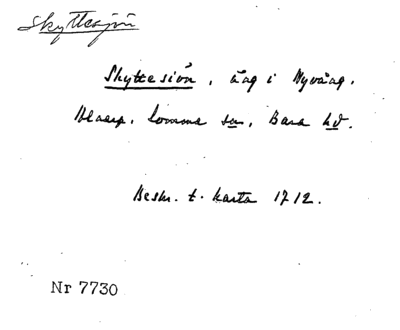 Skyttesjön
Skyttesiön, äng i Nyvång.
Lomma sn, Bara hd.
Beskr. t. karta 1712.
Nr 7730